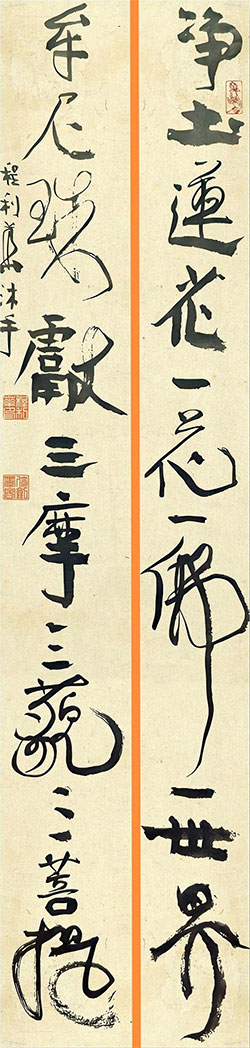 净土蓮花一花一佛一世界
牟尼珠獻三摩三藐三菩提
程利沐手